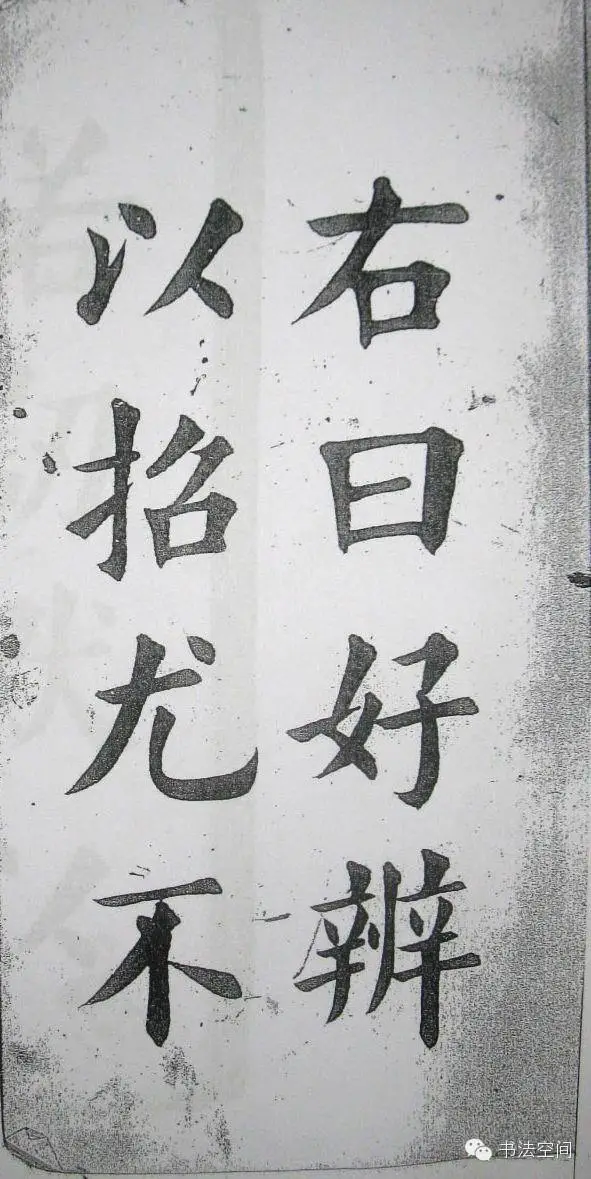 右曰好辨
以招尤不
书法空间